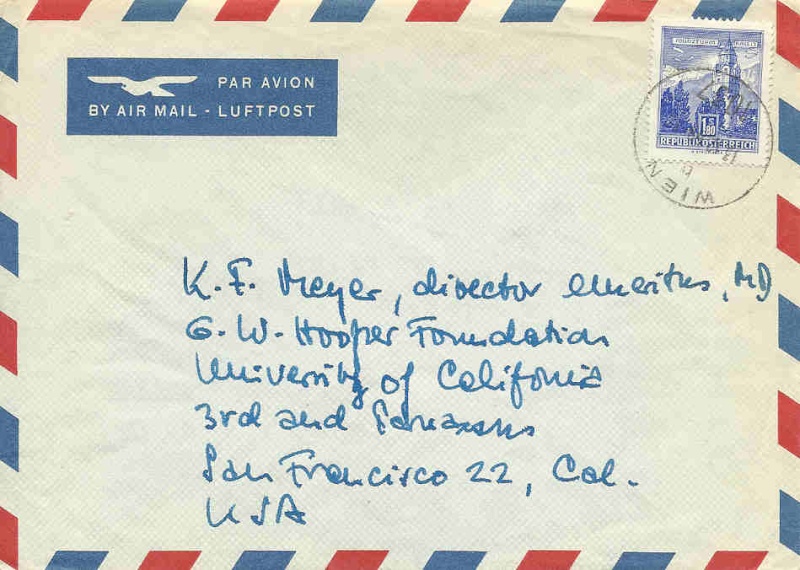 PAR AVION
BY AIR MAIL - LUFTPOST
1.80
REPUBLIK ÖSTERREICH
WIEN
K. F. Meyer, director emeritus, MD
G. W. Hooper Foundation
University of California
3rd and Parnassus
San Francisco 22, Cal.
USA